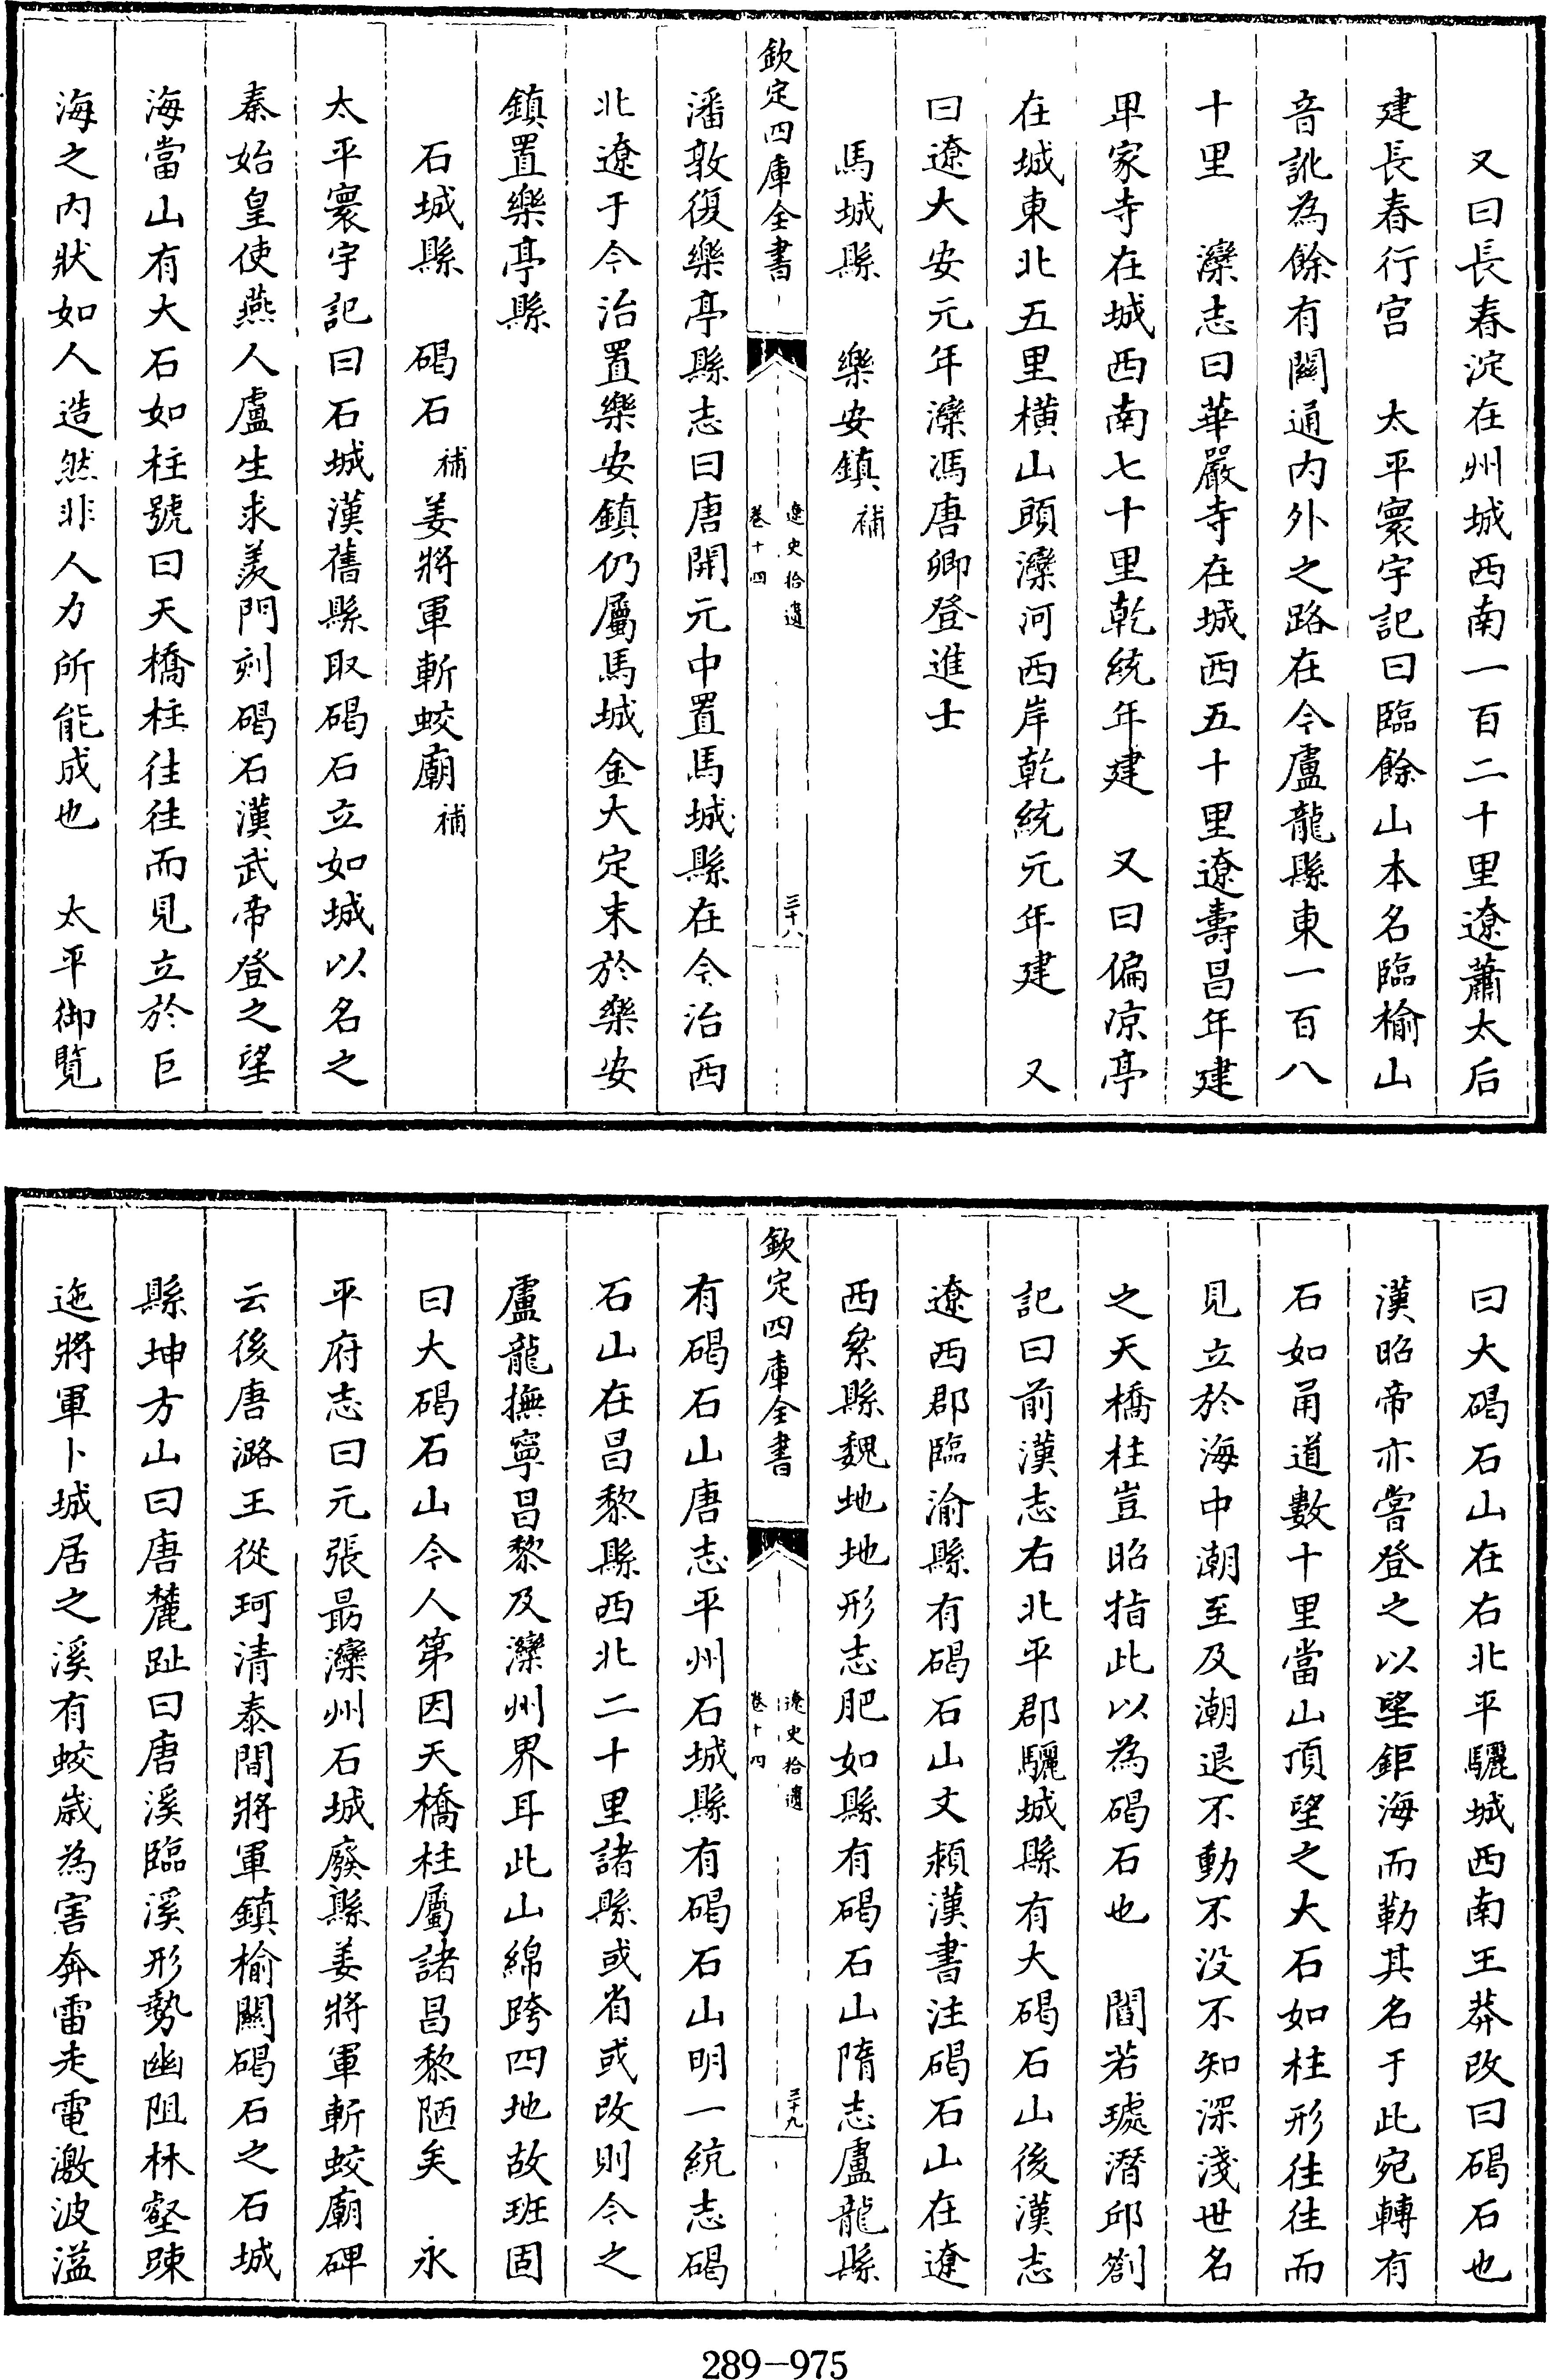 又曰長春淀在州城西南一百二十里遼蕭太后
建長春行宫　太平寰宇記曰臨餘山本名臨榆山
音訛為餘有闗通内外之路在今盧龍縣東一百八
十里　灤志曰華嚴寺在城西五十里遼壽昌年建
畢家寺在城西南七十里乾統年建　又曰偏凉亭
在城東北五里横山頭灤河西岸乾統元年建　又
曰遼大安元年灤馮唐卿登進士
馬城縣　樂安鎮補
欽定四庫全書
遼史拾遺
卷十四
三十八
潘敦復樂亭縣志曰唐開元中置馬城縣在今治西
北遼于今治置樂安鎮仍屬馬城金大定末於樂安
鎮置樂亭縣
石城縣　碣石補姜將軍斬蛟廟補
太平寰宇記曰石城漢舊縣取碣石立如城以名之
秦始皇使燕人盧生求羨門刻碣石漢武帝登之望
海當山有大石如柱號曰天橋柱往往而見立於巨
海之内狀如人造然非人力所能成也　太平御覽
曰大碣石山在右北平驪城西南王莽改曰碣石也
漢昭帝亦嘗登之以望鉅海而勒其名于此宛轉有
石如甬道數十里當山頂望之大石如柱形往往而
見立於海中潮至及潮退不動不没不知深淺世名
之天橋柱豈昭指此以為碣石也　閻若璩潛邱劄
記曰前漢志右北平郡驪城縣有大碣石山後漢志
遼西郡臨渝縣有碣石山文頴漢書注碣石山在遼
西絫縣魏地地形志肥如縣有碣石山隋志盧龍縣
欽定四庫全書
遼史拾遺
卷十四
三十九
有碣石山唐志平州石城縣有碣石山明一統志碣
石山在昌黎縣西北二十里諸縣或省或改則今之
盧龍撫寧昌黎及灤州界耳此山綿跨四地故班固
曰大碣石山今人第因天橋柱屬諸昌黎陋矣　永
平府志曰元張朂灤州石城廢縣姜將軍斬蛟廟碑
云後唐潞王從珂清泰間將軍鎮榆闗碣石之石城
縣坤方山曰唐麓趾曰唐溪臨溪形勢幽阻林壑踈
迤將軍卜城居之溪有蛟歲為害奔雷走電激波溢
289－975